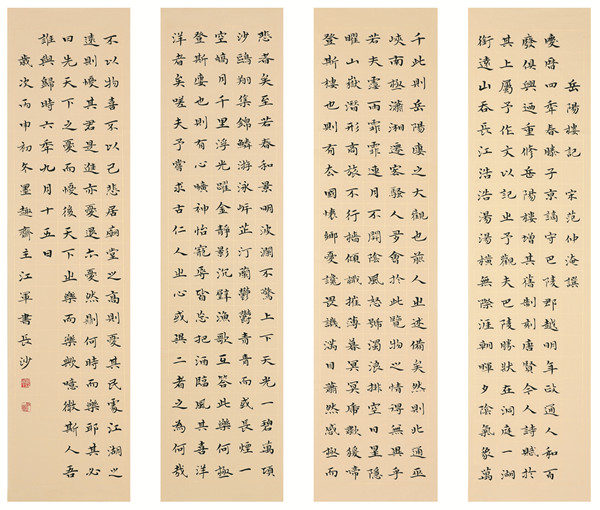 岳陽樓記 宋 范仲淹 撰
慶曆四年春滕子京謫守巴陵郡越明年政通人和百
廢俱興迺重修岳陽樓增其舊制刻唐賢今人詩賦於
其上屬予作文以記之予觀夫巴陵勝狀在洞庭一湖
銜遠山吞長江浩浩湯湯橫無際涯朝暉夕陰氣象萬
千此則岳陽樓之大觀也前人之述備矣然則北通巫
峽南極瀟湘遷客騷人多會於此覽物之情得無異乎
若夫霪雨霏霏連月不開陰風怒號濁浪排空日星隱
曜山嶽潛形商旅不行檣傾楫摧薄暮冥冥虎嘯猿啼
登斯樓也則有去國懷鄉憂讒畏譏滿目蕭然感極而
悲者矣至若春和景明波瀾不驚上下天光一碧萬頃
沙鷗翔集錦鱗游泳岸芷汀蘭鬱鬱青青而或長煙一
空皓月千里浮光躍金靜影沉璧漁歌互答此樂何極
登斯樓也則有心曠神怡寵辱皆忘把酒臨風其喜洋
洋者矣嗟夫予嘗求古仁人之心或異二者之為何哉
不以物喜不以己悲居廟堂之高則憂其民處江湖之
遠則憂其君是進亦憂退亦憂然則何時而樂耶其必
曰先天下之憂而憂後天下之樂而樂歟噫微斯人吾
誰與歸時六年九月十五日
歲次丙申初冬墨趣齋主江軍書長沙